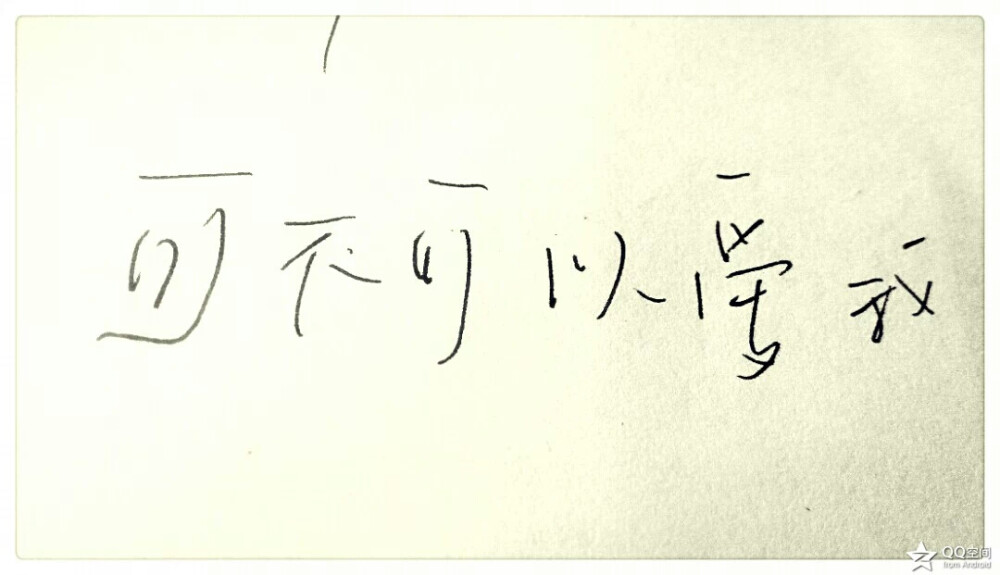 可不可以爱我
QQ空间
from Android